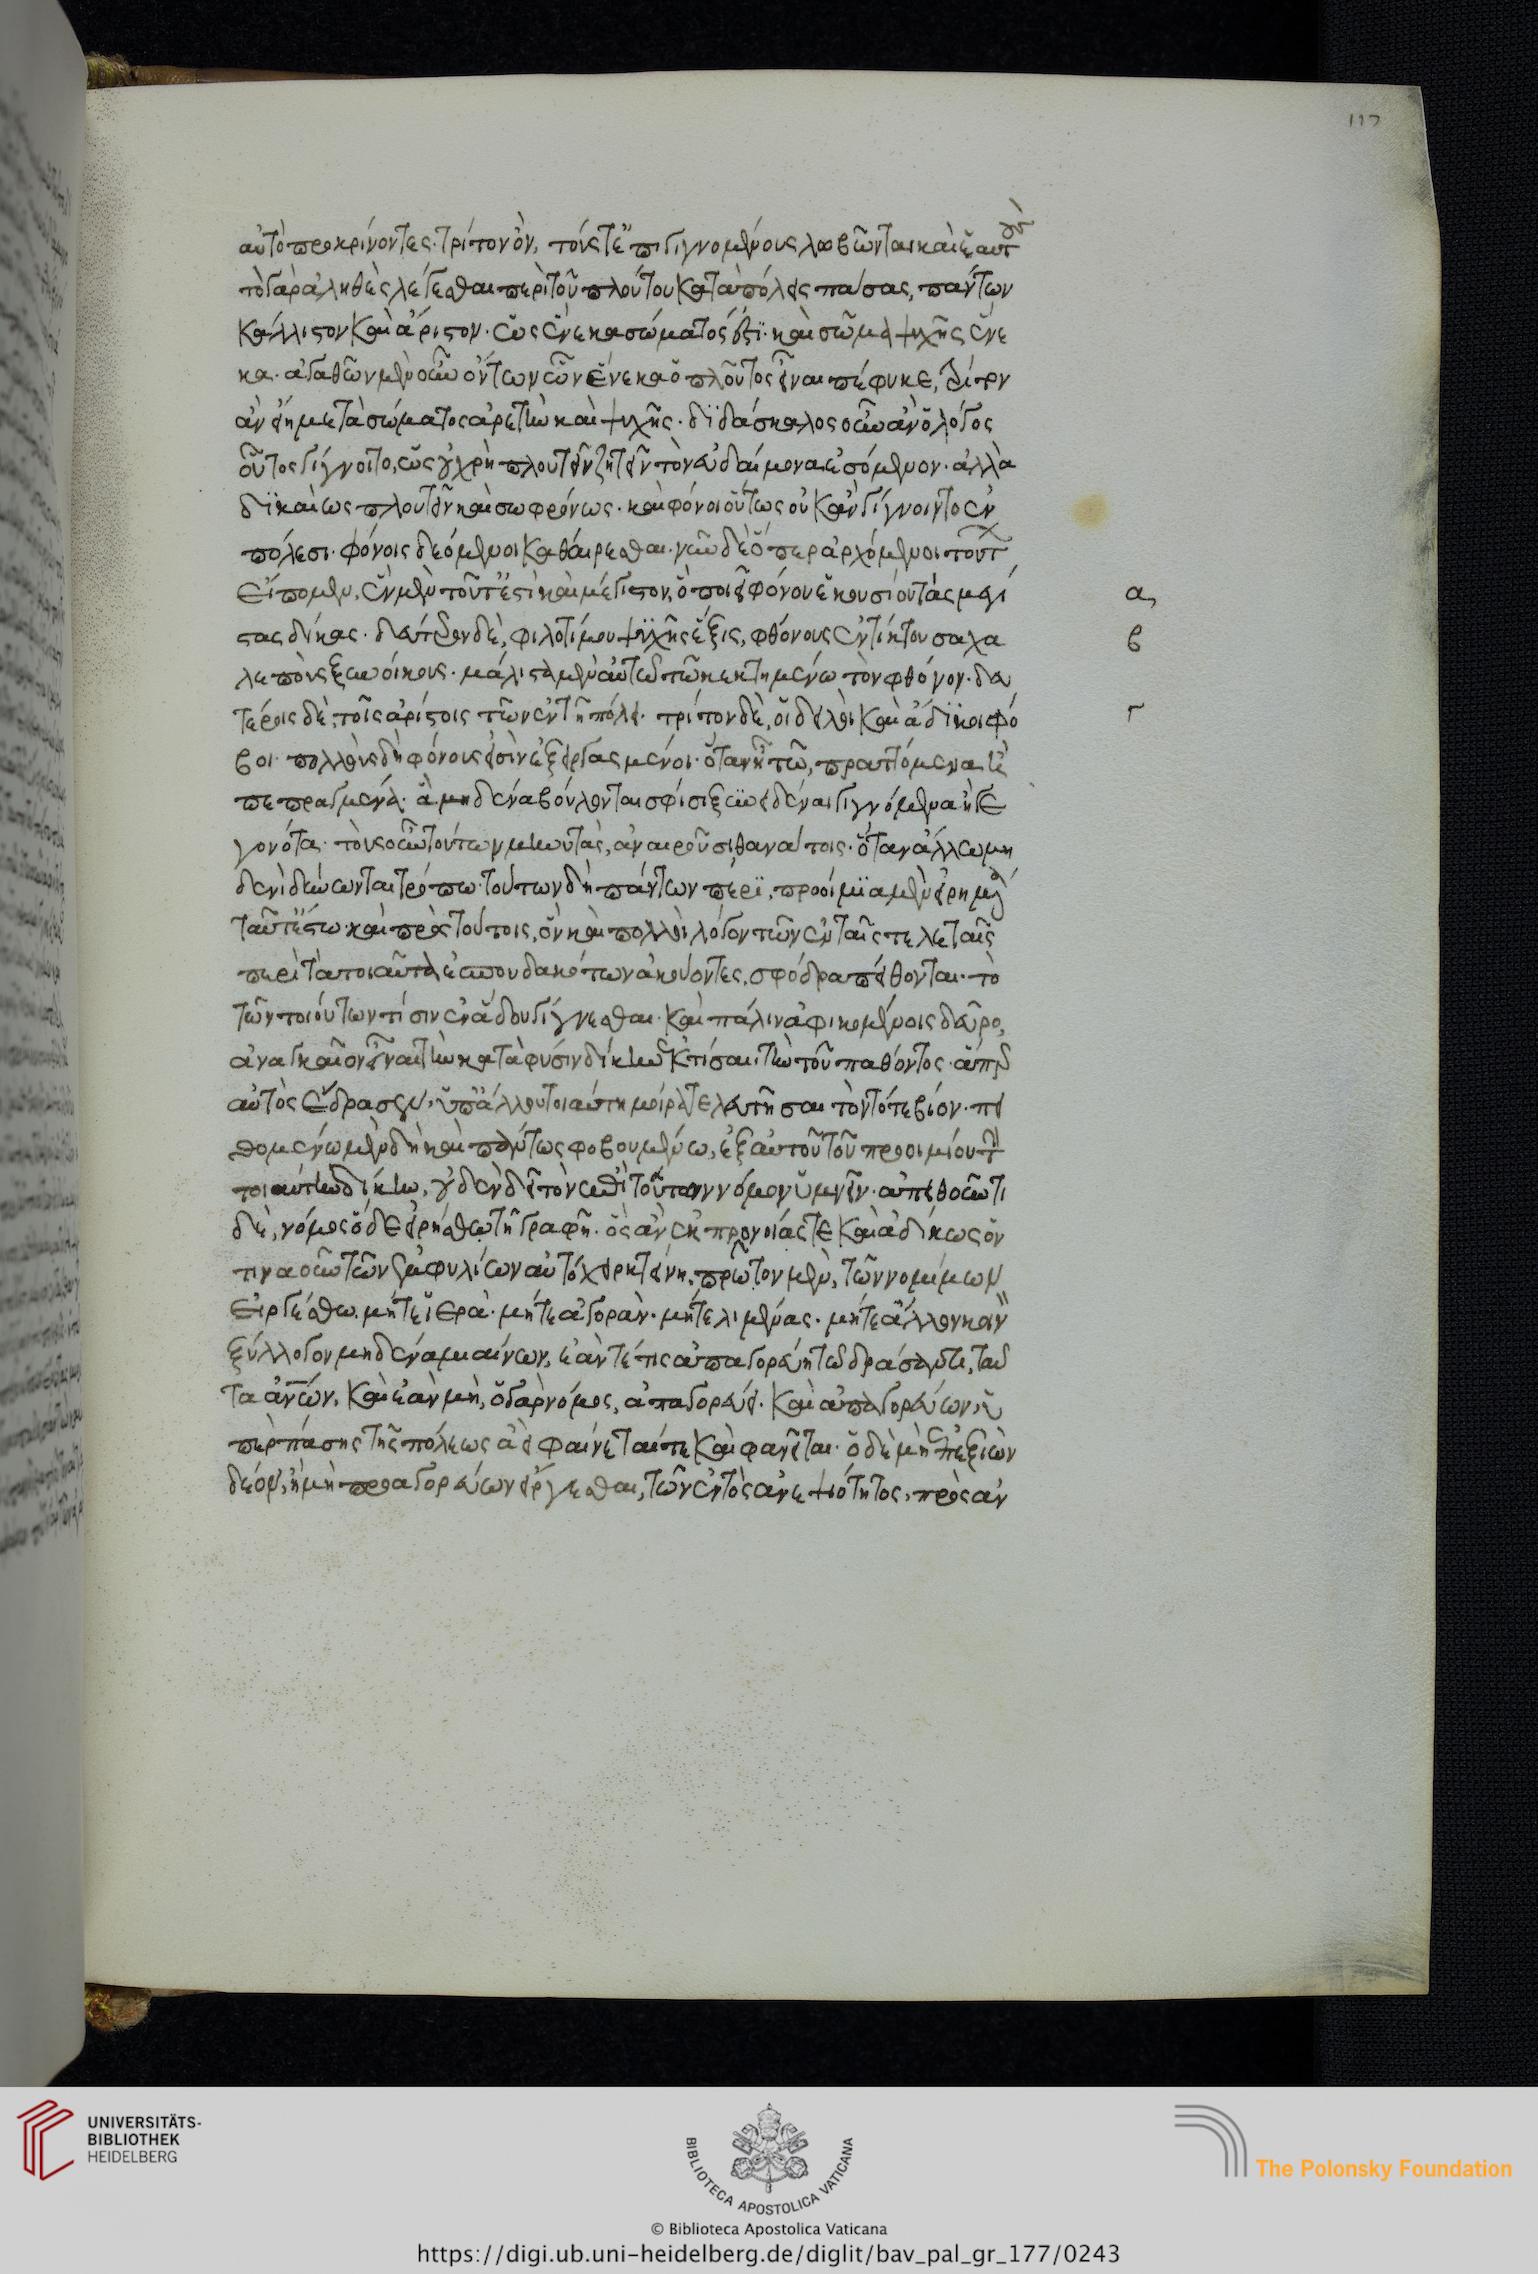 117
αὐτὸ προκρίνοντες· τρίτον ὂν, τούς τε ἐπιγιγνομένους λωβῶνται καὶ ἑαυτοὺς
τὸ γὰρ ἀληθὲς λέγεσθαι περὶ τοῦ πλούτου κατὰ πόλεις πάσας, πάντων
κάλλιστον καὶ ἄριστον. ὡς ἕνεκα σώματός ἐστὶ· καὶ σῶμα ψυχῆς ἕνε
κα. ἀγαθῶν μὲν οὖν ὄντων ὧν ἕνεκα ὁ πλοῦτος εἶναι πέφυκε, τρίτον
ἂν εἴη μετὰ σώματος ἀρετὴν καὶ ψυχῆς. διδάσκαλος οὖν ἂν ὁ λόγος
οὗτος γίγνοιτο, ὡς οὐ χρὴ πλουτεῖν ζητεῖν τὸν εὐδαίμονα ἐσόμενον. ἀλλὰ
δικαίως πλουτεῖν καὶ σωφρόνως. καὶ φόνοι οὕτως οὐκ ἂν γίγνοιντο ἐν
πόλεσι. φόνοις δεόμενοι καθαίρεσθαι. νῦν δὲ ὅπερ ἀρχόμενοι τούτων
εἴπομεν, ἓν μὲν τοῦτ' ἔστὶ καὶ μέγιστον, ὃ ποιεῖ φόνου ἑκουσίου τὰς μεγί
α,
στας δίκας. δεύτερον δὲ, φιλοτίμου ψυχῆς ἕξις, φθόνους ἐντίκτουσα χα
β
λεποὺς ξυνοίκους. μάλιστα μὲν αὐτῷ τῷ κεκτημένω τὸν φθόνον. δευ
τέροις δὲ, τοῖς ἀρίστοις τῶν ἐν τῇ πόλει. τρίτον δὲ, οἱ δειλοὶ καὶ ἄδικοι φό
γ
βοι. πολλοὺς δὴ φόνους εἰσὶν ἐξειργασμένοι. ὅταν ᾖ τῷ, πραττόμενα ἢ
πεπραγμένα. ἃ μηδένα βούλονται σφίσι ξυνειδέναι γιγνόμενα ἢ γε
γονότα. τοὺς οὖν τούτων μηνυτὰς, ἀναιροῦσι θανάτοις. ὅταν ἄλλω μη
δενὶ δύνωνται τρόπω. τούτων δὴ πάντων πέρι, προοίμια μὲν εἰρημένα
ταῦτ' ἔστω. καὶ πρὸς τούτοις, ὃν καὶ πολλοὶ λόγον τῶν ἐν ταῖς τελεταῖς
περὶ τὰ τοιαῦτα ἐσπουδακότων ἀκούοντες, σφόδρα πείθονται. τὸ
τῶν τοιούτων τίσιν ἐν ᾅδου γίγνεσθαι. καὶ πάλιν ἀφικομένοις δεῦρο,
ἀναγκαῖον εἶναι τὴν κατὰ φύσιν δίκην ἐκτίσαι, τὴν τοῦ παθόντος. ἅπερ
αὐτὸς ἔδρασεν, ὑπ' ἄλλου τοιαύτη μοίρα τελευτῆσαι τὸν τότε βίον. πει
θομένω μὲν δὴ καὶ πάντως φοβουμένω, ἐξ αὐτοῦ τοῦ προοιμίου τὴν
τοιαύτην δίκην, οὐδὲν δεῖ τὸν ἐπὶ τούτω νόμον ὑμνεῖν. ἀπειθοῦντι
δὲ, νόμος ὅδε εἰρήσθω τῇ γραφῇ. ὃς ἂν ἐκ προνοίας τε καὶ ἀδίκως ὅν
τινα οὖν τῶν ἐμφυλίων αὐτόχειρ κτείνη, πρῶτον μὲν, τῶν νομίμων
εἰργέσθω. μήτε ἱερὰ. μήτε ἀγορὰν. μήτε λιμένας. μήτε ἄλλον κοινὸν
ξύλλογον μηδένα μιαίνων, ἐάν τέ τις ἀπαγορεύη τῷ δράσαντι, ταῦ
τα ἀνθρώπων, καὶ ἐὰν μὴ, ὁ γὰρ νόμος, ἀπαγορεύει. καὶ ἀπαγορεύων, ὑ
πὲρ πάσης τῆς πόλεως ἀεὶ φαίνεταί τε καὶ φανεῖται. ὁ δὲ μὴ ἐπεξιὼν
δέον, ἢ μὴ προαγορεύων εἴργεσθαι, τῶν ἐντὸς ἀνεψιότητος, πρὸς ἀν
UNIVERSITÄTS-
BIBLIOTHEK
HEIDELBERG
BIBLIOTECA APOSTOLICA VATICANA
The Polonsky Foundation
© Biblioteca Apostolica Vaticana
https://digi.ub.uni-heidelberg.de/diglit/bav_pal_gr_177/0243